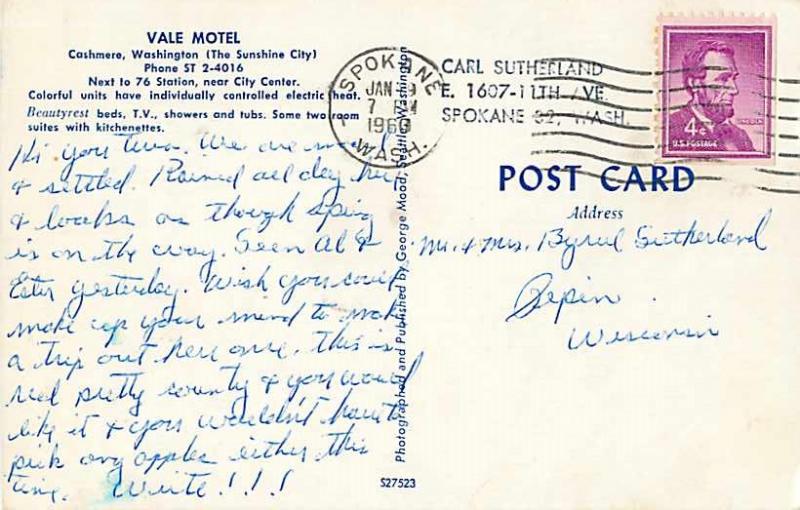 VALE MOTEL
Cashmere, Washington (The Sunshine City)
Phone ST 2-4016
Next to 76 Station, near City Center.
Colorful units have individually controlled electric heat.
Beautyrest beds, T.V., showers and tubs. Some two room
suites with kitchenettes.
Hi you two. We are moved
& settled. Rained all day here
& looks as though spring
is on the way. Seen Al &
Ester yesterday. Wish you could
make up your mind to make
a trip out here once. This is
real pretty country & you would
like it & you wouldn't have to
pick any apples either this
time. Write!!!
Photographed and Published by George Mood, Seattle, Washington
S27523
SPOKANE
JAN
7 PM
1960
WASH.
CARL SUTHERLAND
E. 1607-11TH AVE.
SPOKANE 32, WASH.
LINCOLN
4¢
U.S. POSTAGE
POST CARD
Address
Mr. & Mrs. Byrul Sutherland
Pepin
Wisconsin